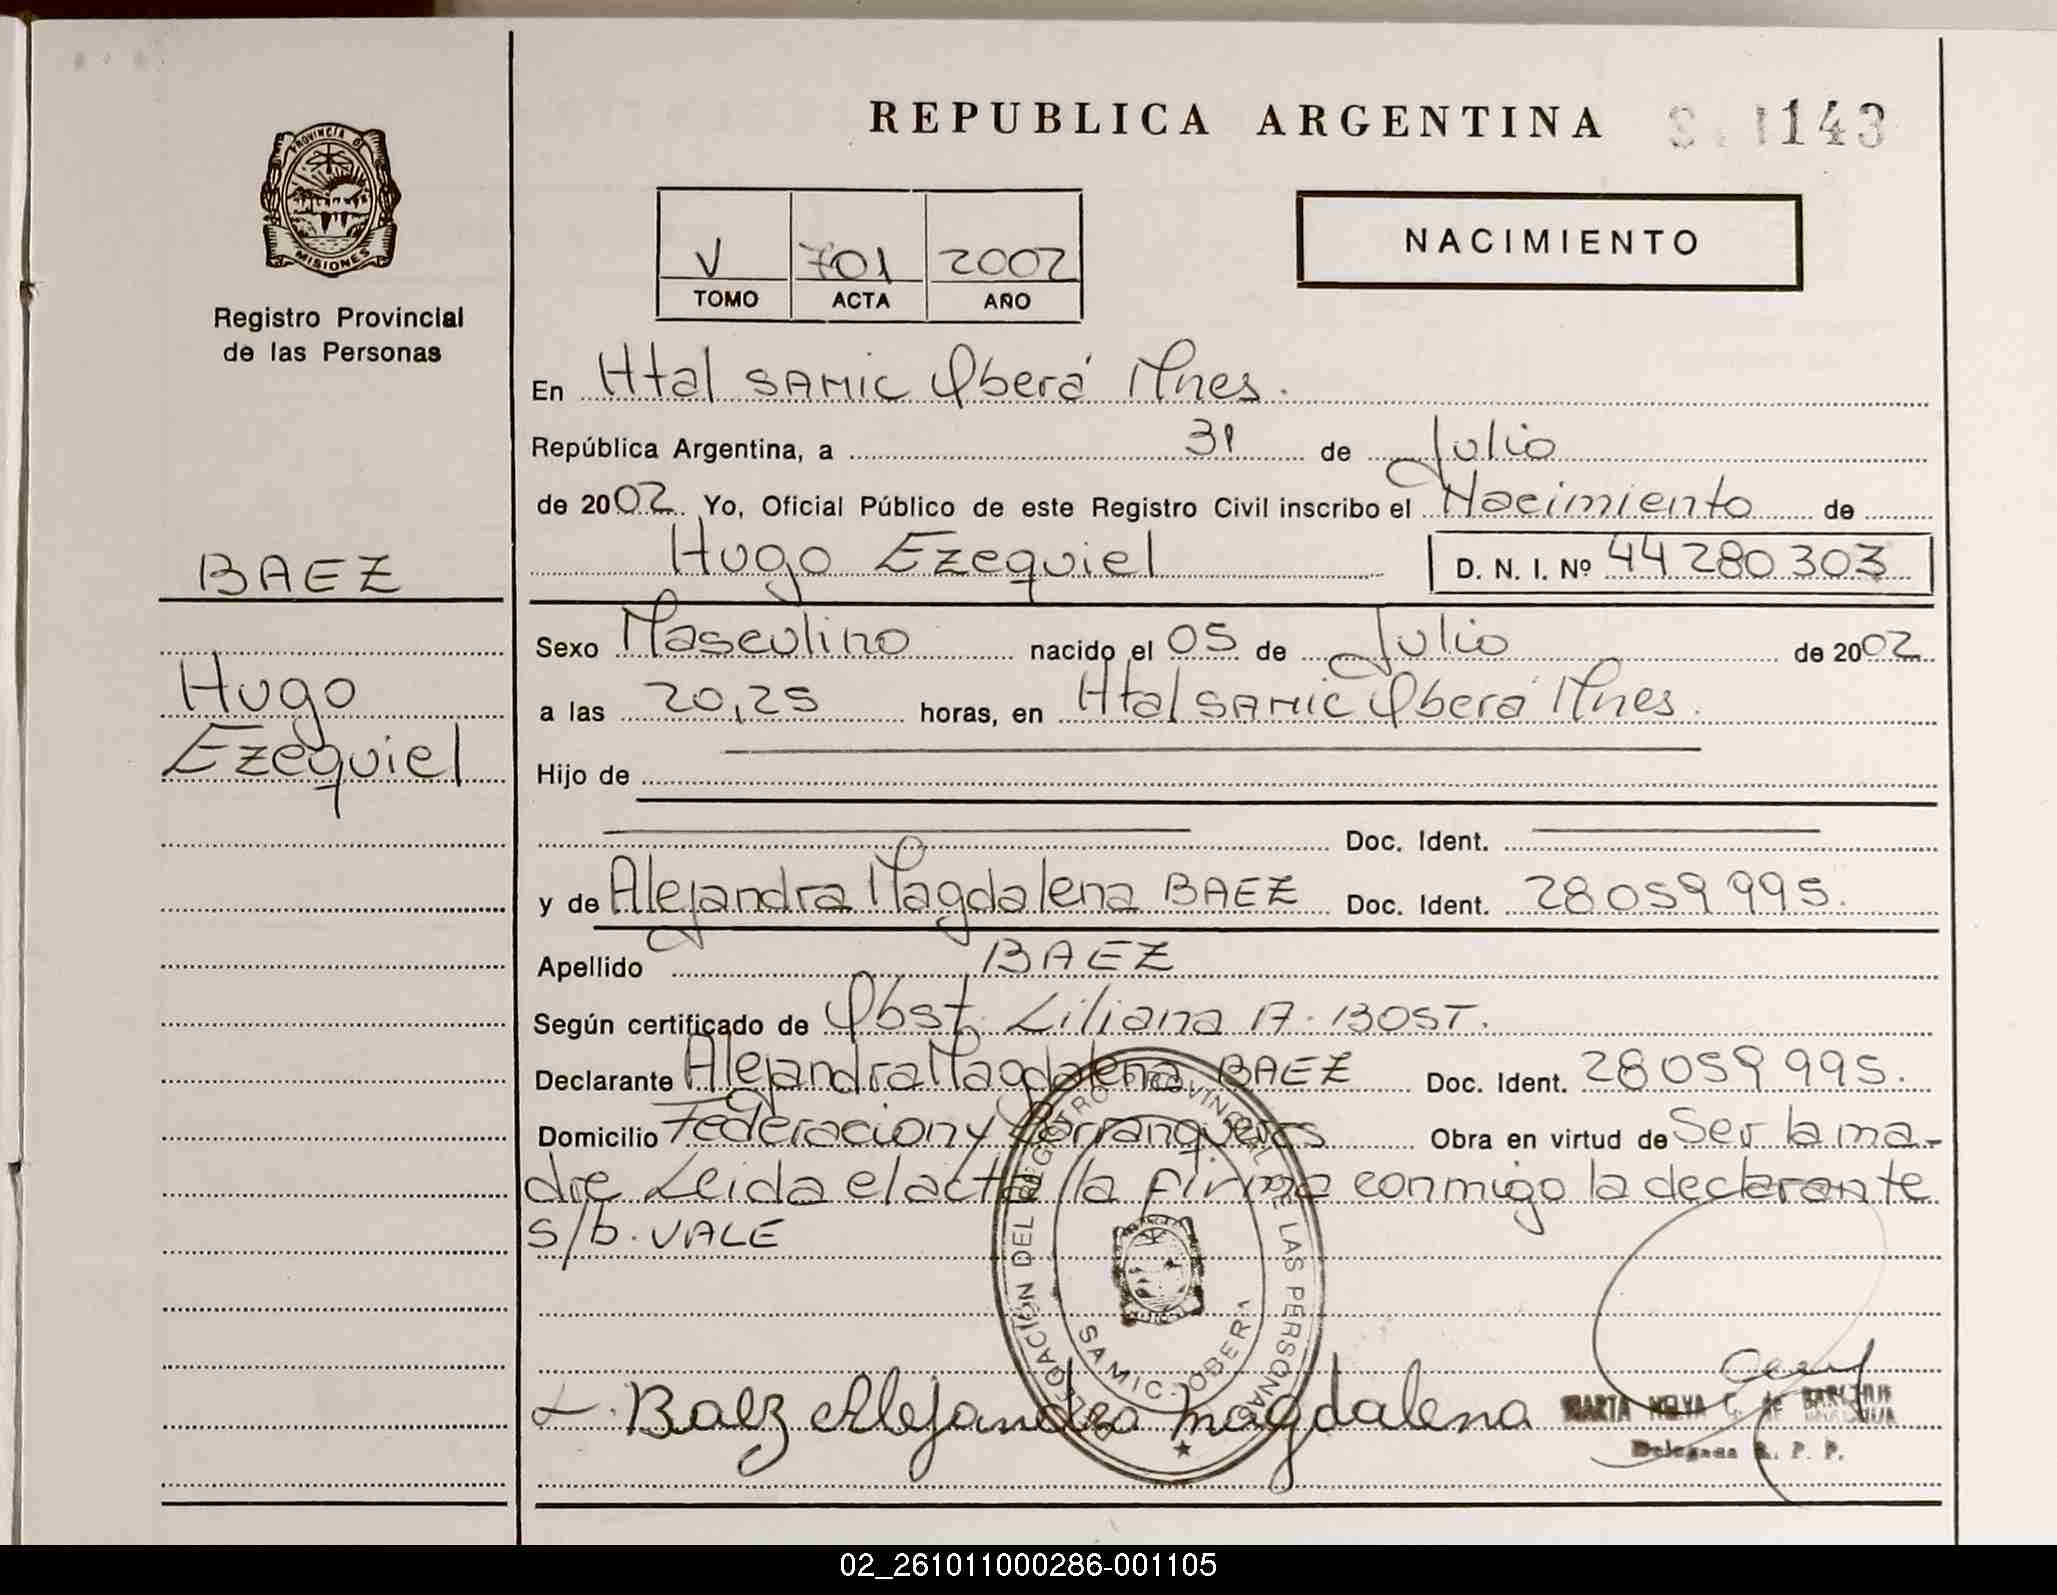 REPUBLICA ARGENTINA
143
PROVINCIA DE MISIONES
Registro Provincial
de las Personas
V 701 2002
TOMO ACTA AÑO
NACIMIENTO
En Htal SAMIC Oberá Mnes.
República Argentina, a 31 de Julio
de 2002 Yo, Oficial Público de este Registro Civil inscribo el Nacimiento de
Hugo Ezequiel D. N. I. Nº 44 280 303
BAEZ
Hugo
Ezequiel
Sexo Masculino nacido el 05 de Julio de 2002
a las 20,25 horas, en Htal SAMIC Oberá Mnes.
Hijo de
Doc. Ident.
y de Alejandra Magdalena BAEZ Doc. Ident. 28 059 995.
Apellido BAEZ
Según certificado de Obst. Liliana A. BOST.
Declarante Alejandra Magdalena BAEZ Doc. Ident. 28 059 995.
Domicilio Federacion y Dorranqueras Obra en virtud de Ser la ma-
dre Leida el acta la firma conmigo la declarante
s/b. VALE
DELEGACIÓN DEL REGISTRO PROVINCIAL DE LAS PERSONAS
SAMIC - OBERA
Baez Alejandra Magdalena
MARTA NELVA C. de
Delegada R. P. P.
02_261011000286-001105